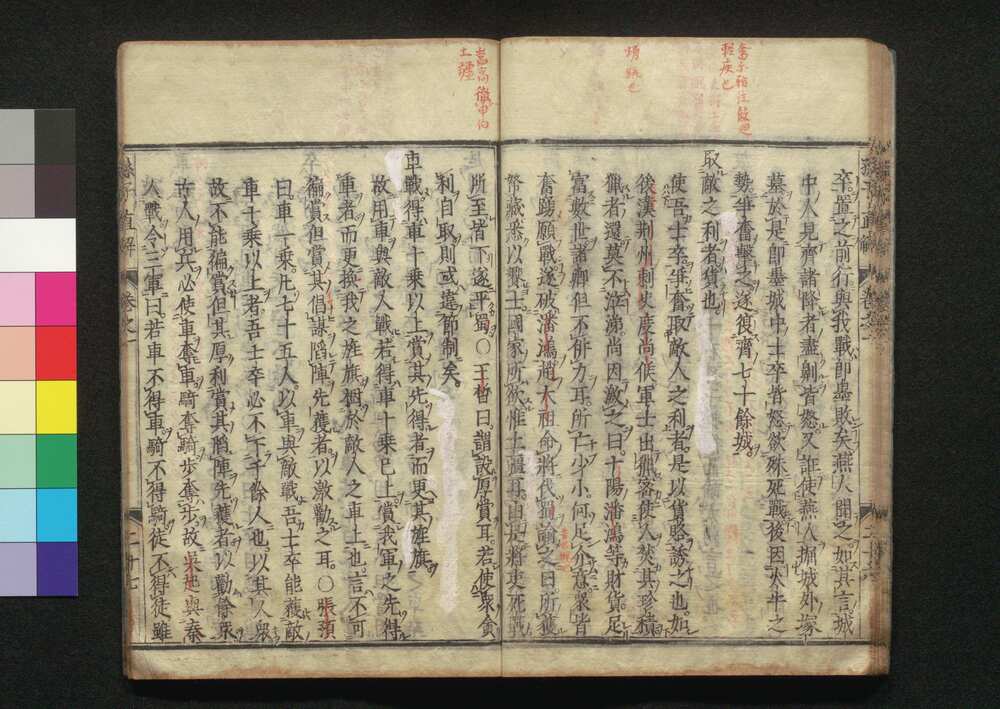 卒置之前行與我戰即墨敗矣燕人聞之如其言城
中人見齊諸降者盡劓皆怒又詐使燕人掘城外塚
墓於是即墨城中士卒皆怒欲殊死戰後因火牛之
勢爭奮擊之遂復齊七十餘城
取敵之利者貨也
使吾士卒爭奮取敵人之利者是以貨賂誘之也如
後漢荆州刺史度尚俟軍士出獵密使人焚其珍積
獵者還莫不泣涕尚因激之曰卜陽潘鴻等財貨足
富數世諸卿但不併力耳所亡少小何足介意衆皆
奮踴願戰遂破潘鴻趙太祖命將伐蜀諭之曰所獲
帑藏悉以賛士國家所欲惟土疆耳由是將吏死戰
所至皆下遂平蜀○王晳曰謂設厚賞耳若使衆貪
利自取則或違節制矣
車戰得車十乘以上賞其先得者而更其旌旗
故用車與敵人戰若得車十乘已上賞我軍之先得
車者而更換我之旌旗於敵人之車上也言不可
徧賞但賞其倡謀陷陣先獲者以激勸之耳○張預
曰車一乘凡七十五人以車與敵戰吾士卒能獲敵
車十乘以上者吾士卒必不下千餘人也以其人衆
故不能徧賞但其厚利賞其陷陣先獲者以勸餘衆
古人用兵必使車奪車騎奪騎歩奪歩故吳起與秦
人戰令三軍曰若車不得車騎不得騎徒不得徒雖
孫子直解
卷之一
二十七